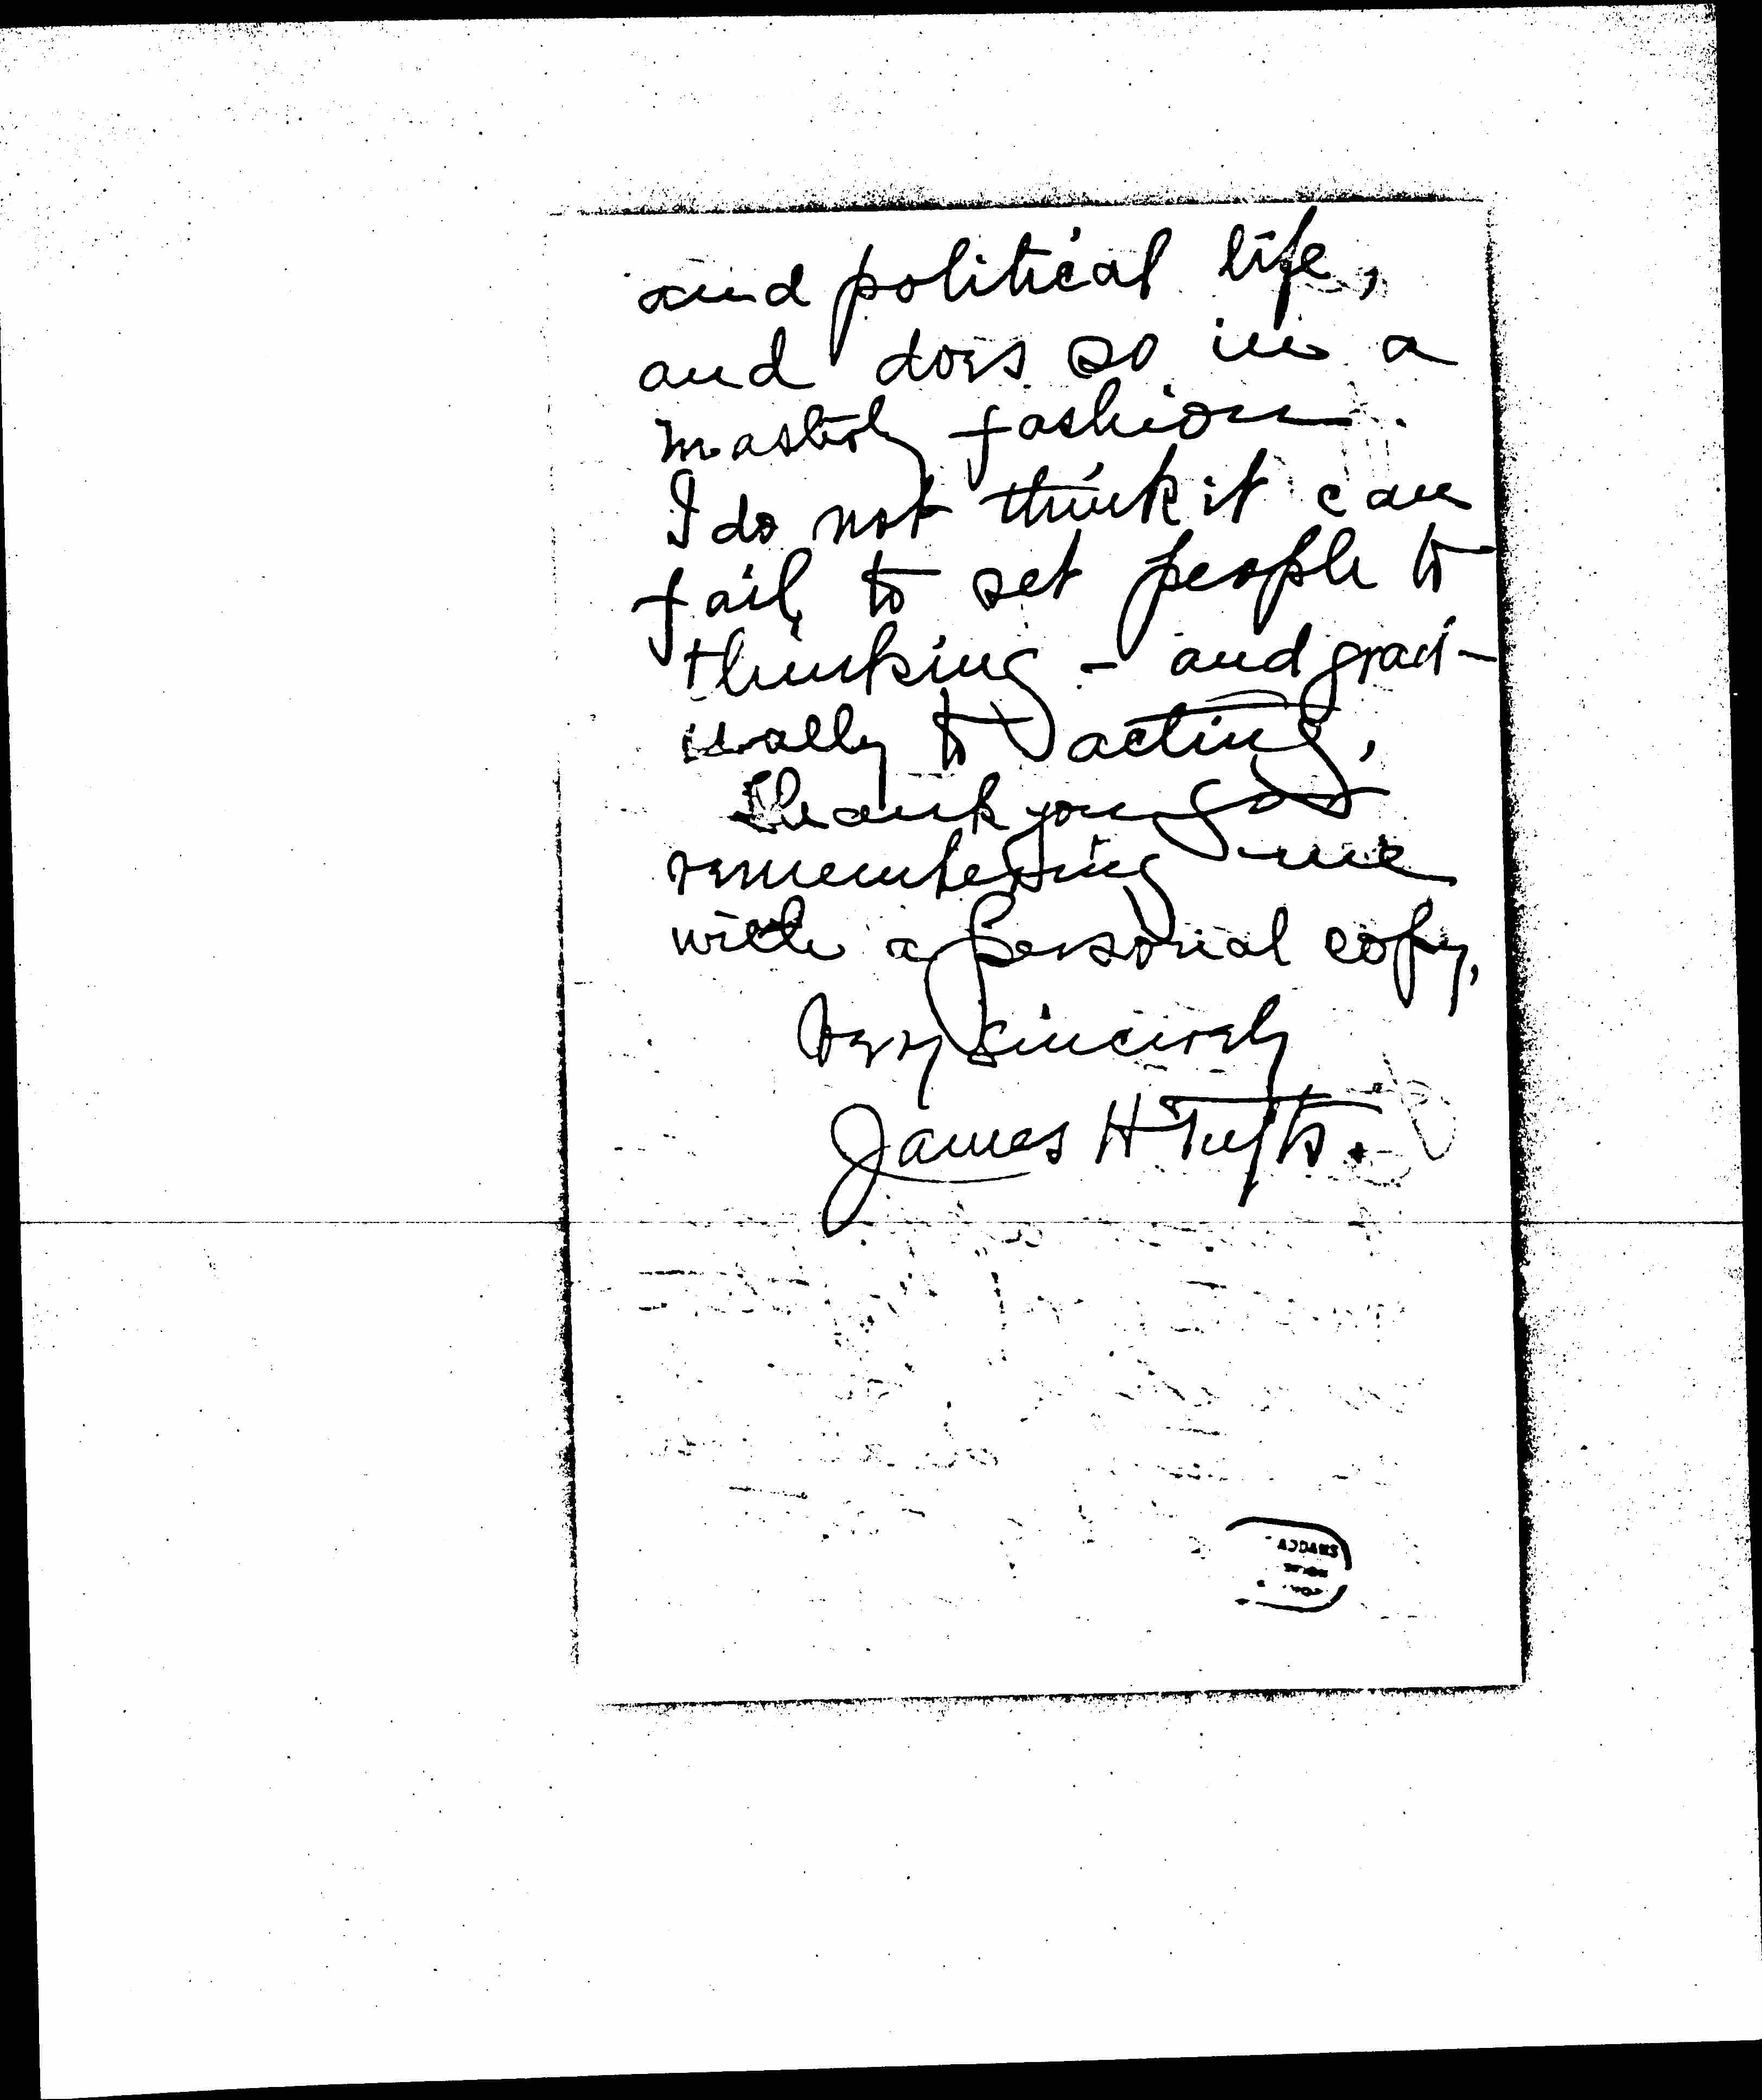 and political life,
and does so in a
masterly fashion.
I do not think it can
fail to set people to
thinking – and grad-
ually to acting.
Thank you for
remembering me
with a personal copy.
Very sincerely
James H Tufts.
ADDAMS